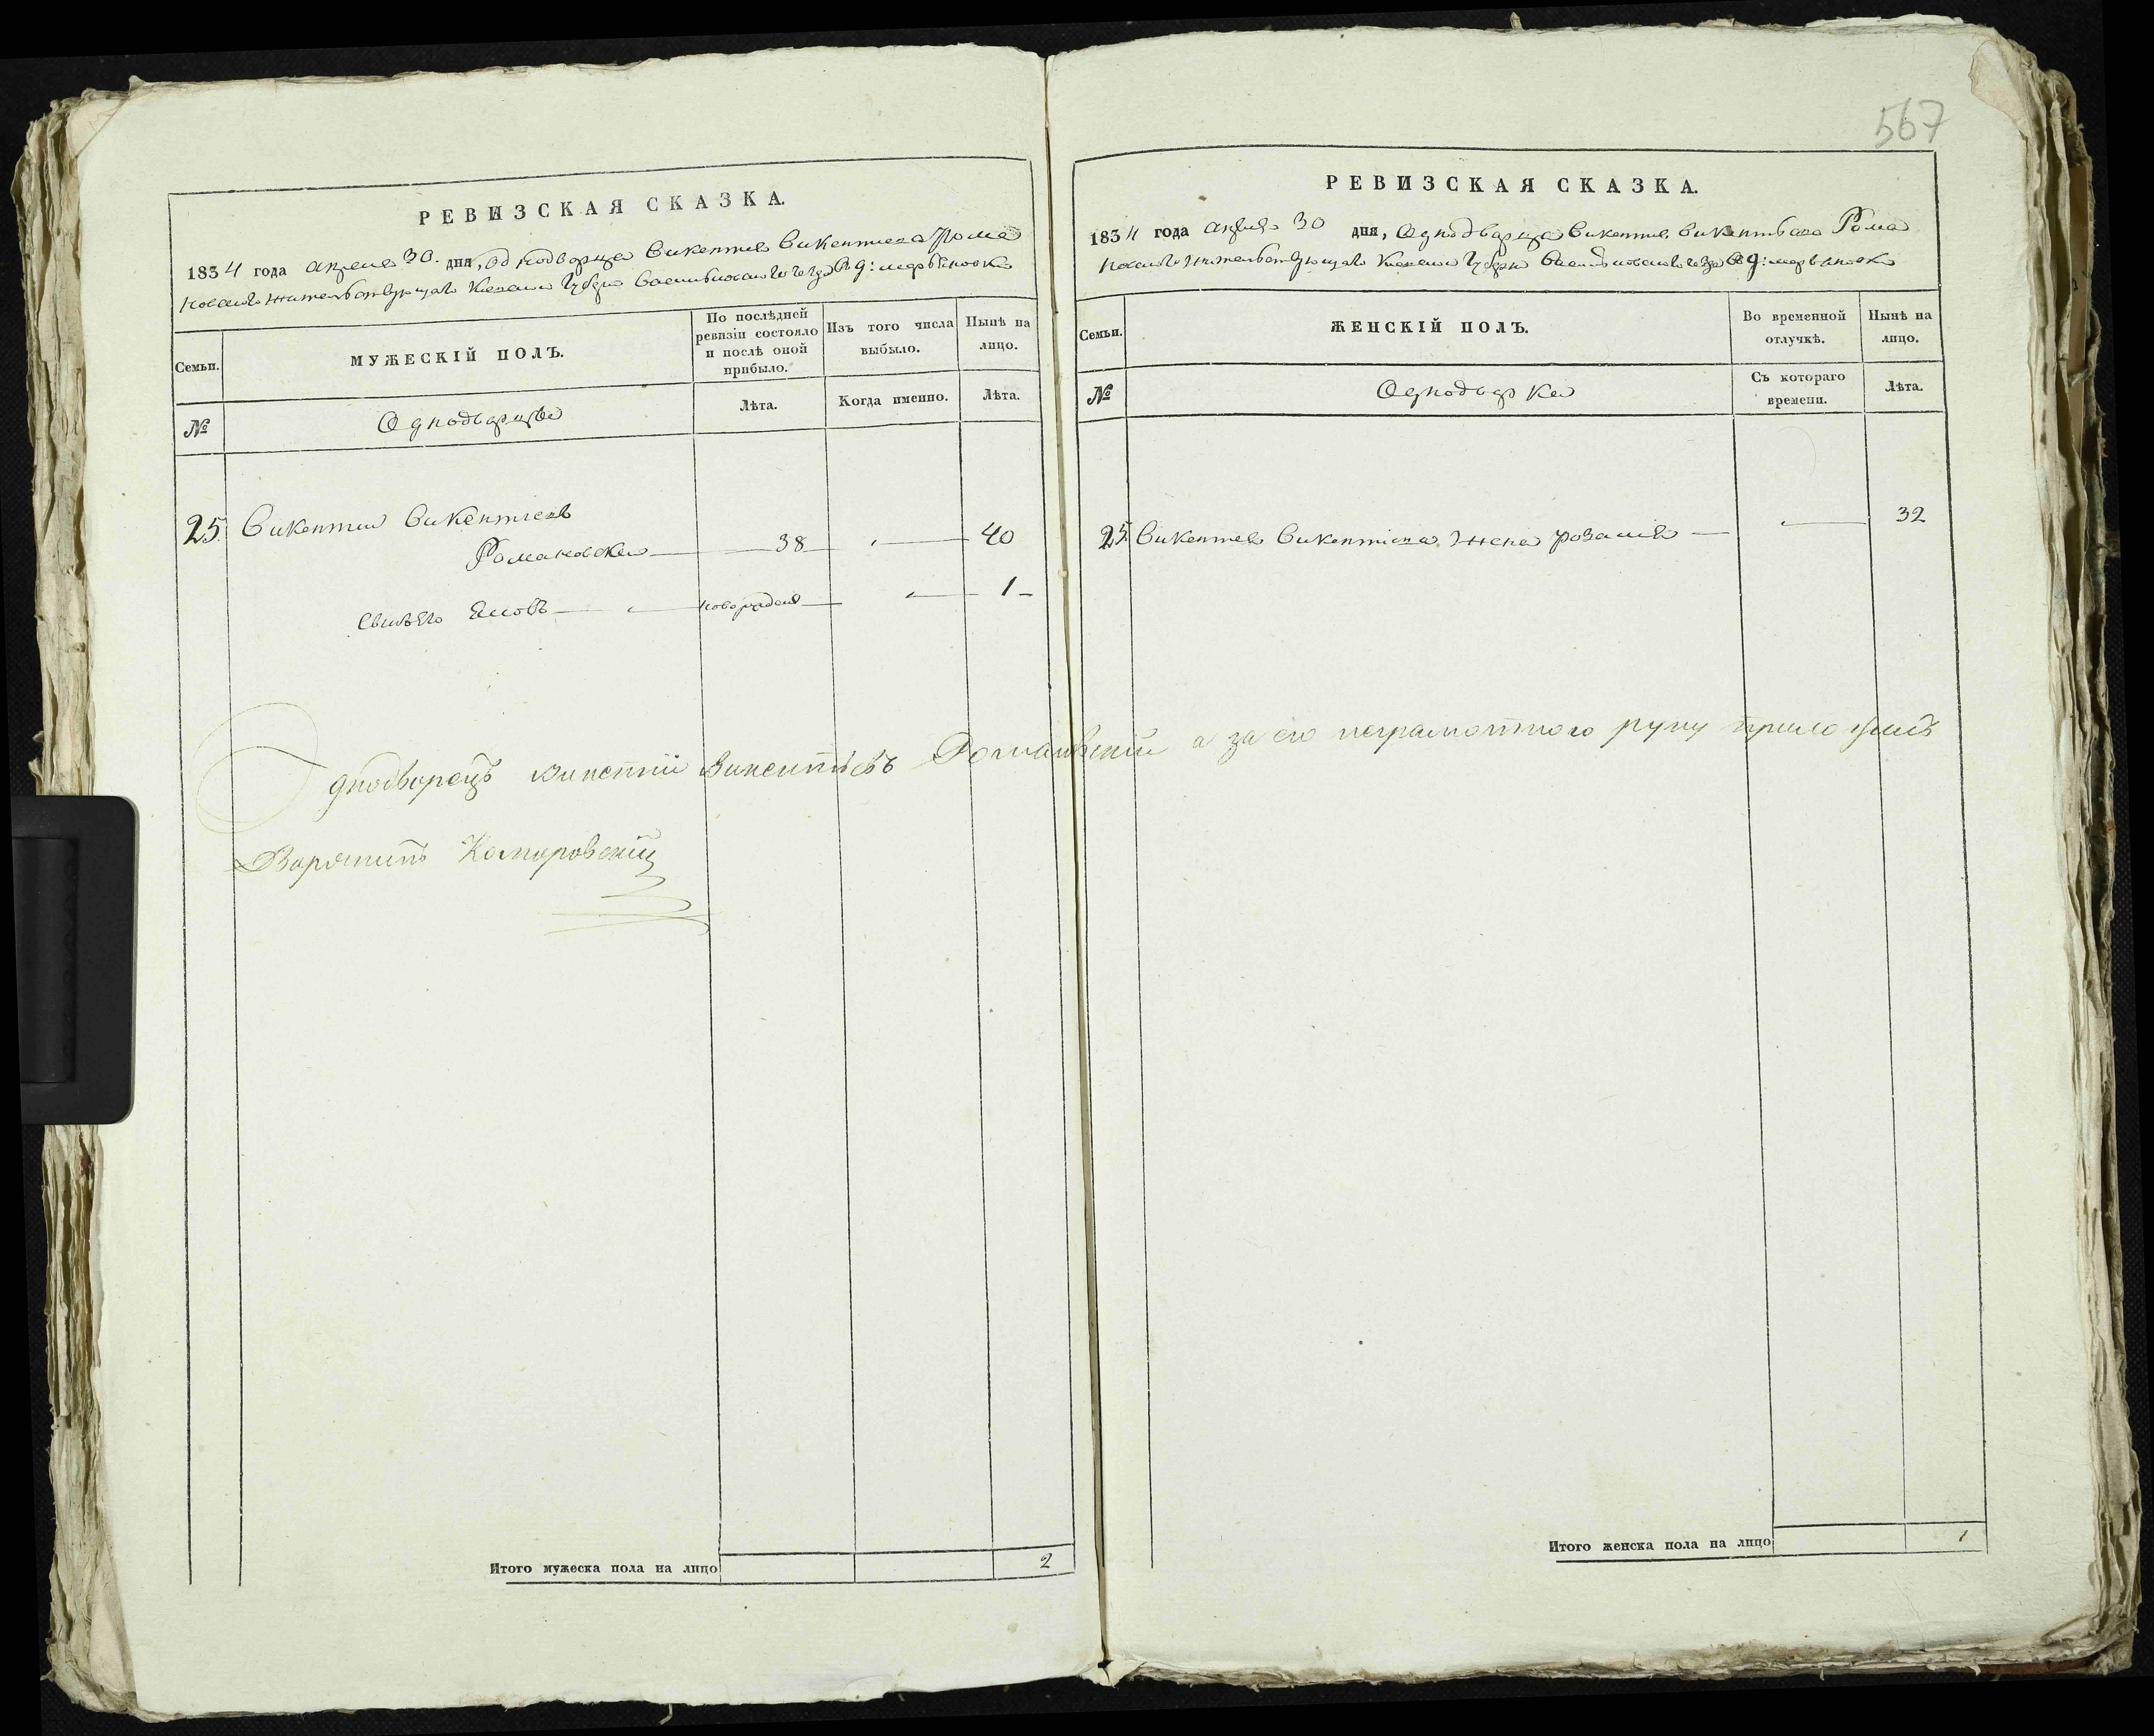 567
РЕВИЗСКАЯ СКАЗКА.
1834 года апреля 30. дня, однодворца Викентия Викентиева Рома
новского жительствующаго Киевской Губернии Васильковского уезда В д:
Семьи.
МУЖЕСКІЙ ПОЛЪ.
По послѣдней ревизіи состояло и послѣ оной прибыло.
Изъ того числа выбыло.
Нынѣ на лицо.
№
Однодворцы
Лѣта.
Когда именно.
Лѣта.
25 Викентий Викентиевъ
Романовский 38 40
Сынъ его новорожден 1
Однодворецъ Викентій Викентіевъ Романовскій а за его неграмотного руку приложилъ
Дворянинъ Комаровскій
Итого мужеска пола на лицо 2
РЕВИЗСКАЯ СКАЗКА.
1834 года апреля 30 дня, Однодворца Викентия Викентьева Рома
новского жительствующаго Киевской Губернии Васильковского уезда В д:
Семьи.
ЖЕНСКІЙ ПОЛЪ.
Во временной отлучкѣ.
Нынѣ на лицо.
№
Однодворки
Съ котораго времени.
Лѣта.
25 Викентия Викентиева жена розалия 32
Итого женска пола на лицо 1